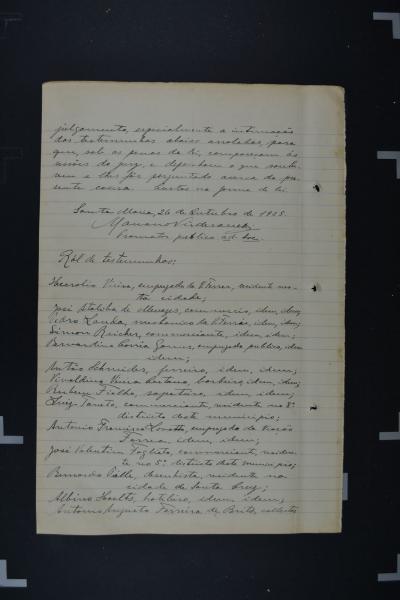 julgamento, especialmente a intimação
das testemunhas abaixo arroladas, para
que, sob as penas da lei, compareçam às
sessões do jury, e deponham o que soube-
rem e lhes fôr perguntado acerca da pre-
sente causa. Autos na forma da lei.
Santa Maria, 26 de Outubro de 1925.
Mariano
Promotor publico ad-hoc.
Ról de testemunhas:
Vieira, empregado da V. Ferrea, residente nes-
ta cidade;
José de Menezes, commercio, idem, idem;
Pedro mechanico da V. Ferrea, idem, idem;
Simon commerciante, idem, idem;
Bernardino Corrêa Gomes, empregado publico, idem
idem;
Antão Schneider, ferreiro, idem, idem;
Vieira Caetano, barbeiro, idem, idem;
Rubem Fialho, sapateiro, idem, idem;
commerciante, residente no 8º
districto deste municipio;
Antonio Francisco empregado da Viação
Ferrea, idem, idem;
José Valentim commerciante, residen-
te no 5º districto deste municipio;
Bernardo residente na
cidade de Santa Cruz;
Albino hoteleiro, idem, idem;
Antonio Augusto Ferreira de Brito, collector